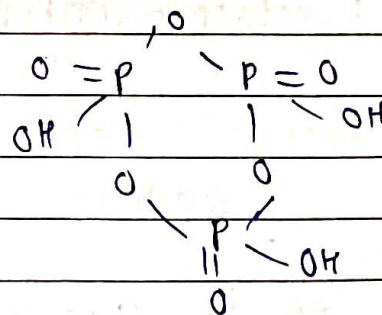 O
O = P P = O
OH OH
O O
P
OH
O